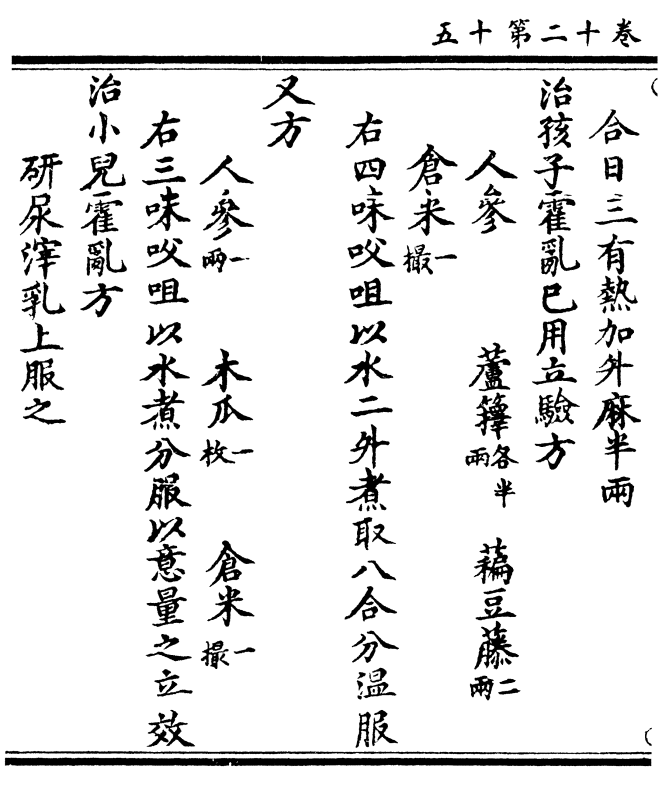 卷十二第十五
合日三有熱加升麻半兩
治孩子霍亂已用立驗方
人參 蘆籜各半兩 藊豆藤二兩
倉米一撮
右四味㕮咀以水二升煮取八合分温服
又方
人參一兩 木瓜一枚 倉米一撮
右三味㕮咀以水煮分服以意量之立效
治小兒霍亂方
研尿滓乳上服之